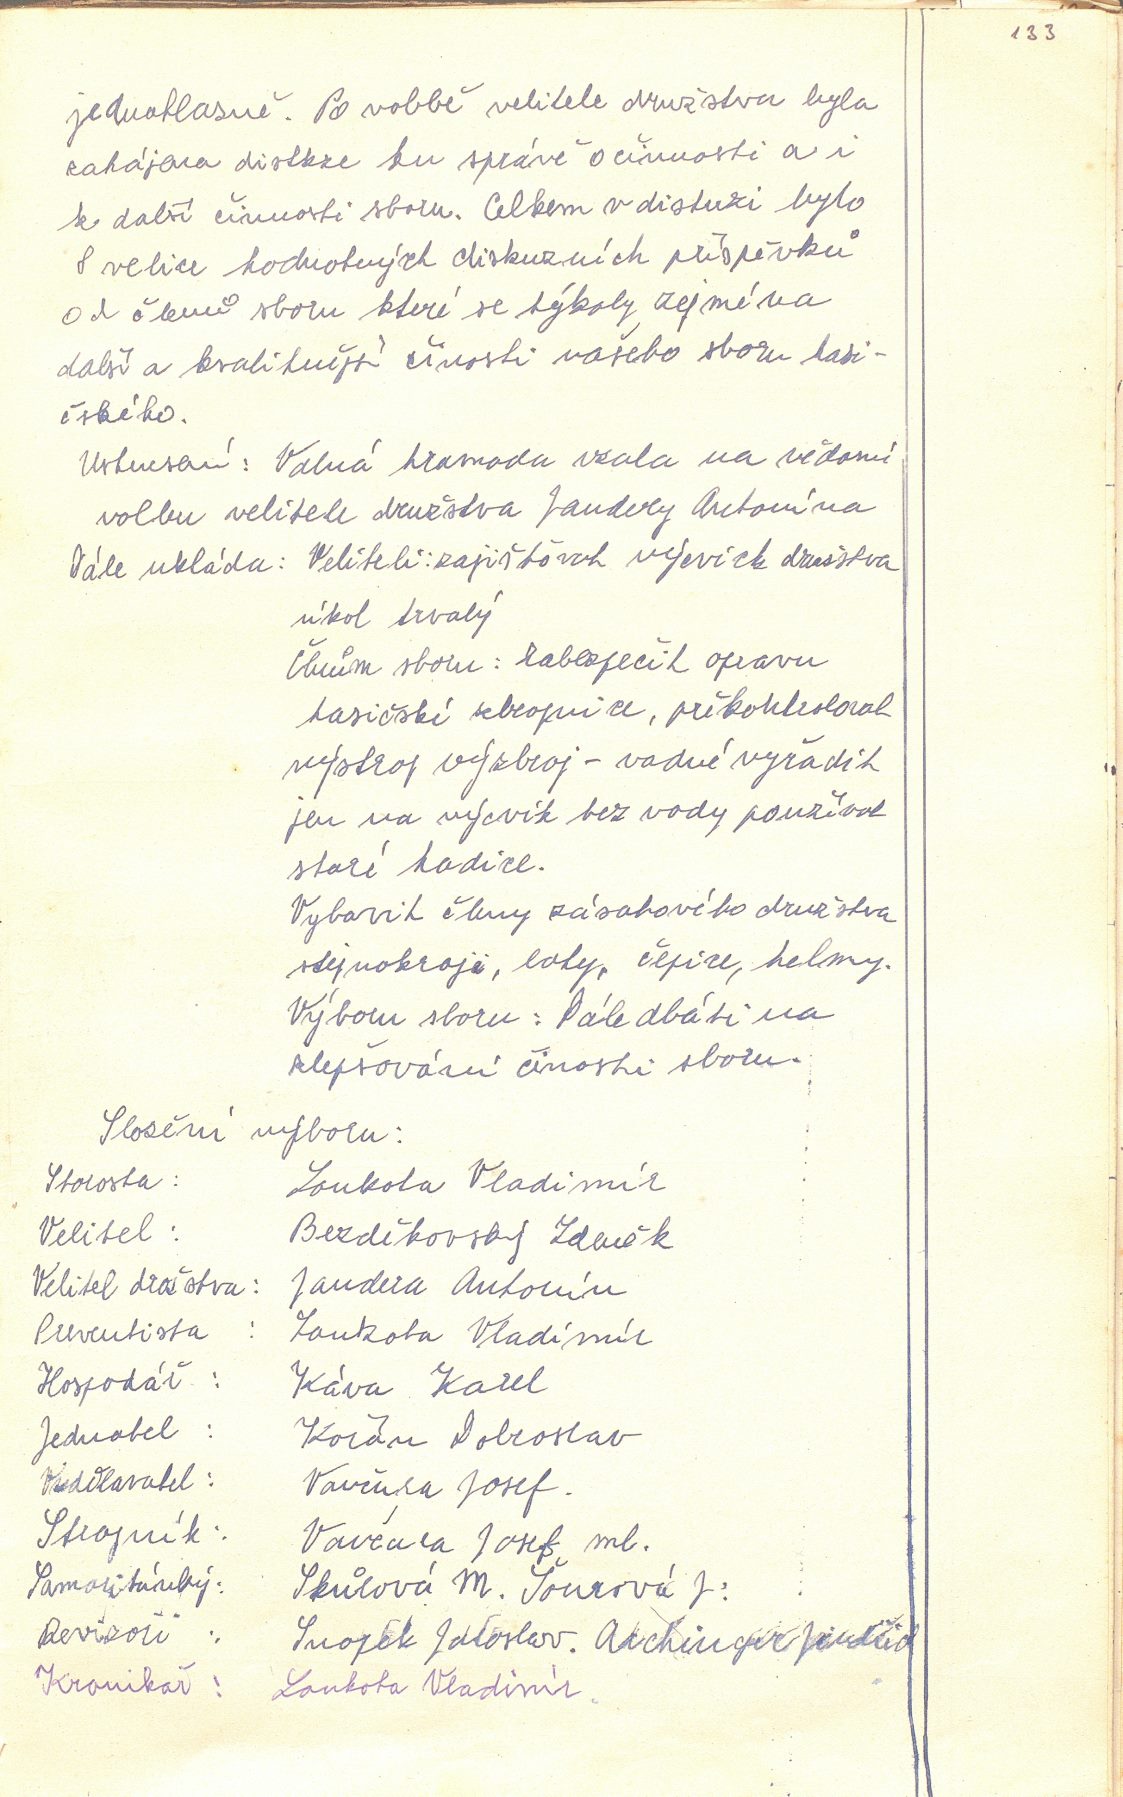 133
jednohlasně. Po volbě velitele družstva byla
zahájena diskuze ku správě o činnosti a i
k další činnosti sboru. Celkem v diskuzi bylo
8 velice hodnotných diskuzních příspěvků
od členů sboru které se týkaly zejména
další a kvalitnější činosti našeho sboru hasi-
čského.
Usnesení: Valná hromada vzala na vědomí
volbu velitele družstva Jandery Antonína
Dále ukládá: Veliteli: zajišťovat výcvick družstva
úkol trvalý
Členům sboru: Zabezpečit opravu
hasičské zbrojnice, překontrolovat
výstroj výzbroj - vadné vyřadit
jen na výcvik bez vody používat
staré hadice.
Vybavit členy zásahového družstva
stejnokroji, boty, čepice, helmy.
Výboru sboru: Dále dbáti na
zlepšování činosti sboru.
Složení výboru:
Starosta: Loukota Vladimír
Velitel: Bezděkovský Zdeněk
Velitel družstva: Jandera Antonín
Preventista: Loukota Vladimír
Hospodář: Káva Karel
Jednatel: Kořán Dobroslav
Vzdělavatel: Vavčura Josef.
Strojník: Vavčura Josef ml.
Samaritánky: Skůlová M. Šourová J:
Revizoři: Snopek Jaroslav. Aichinger Jindřich
Kronikář: Loukota Vladimír.